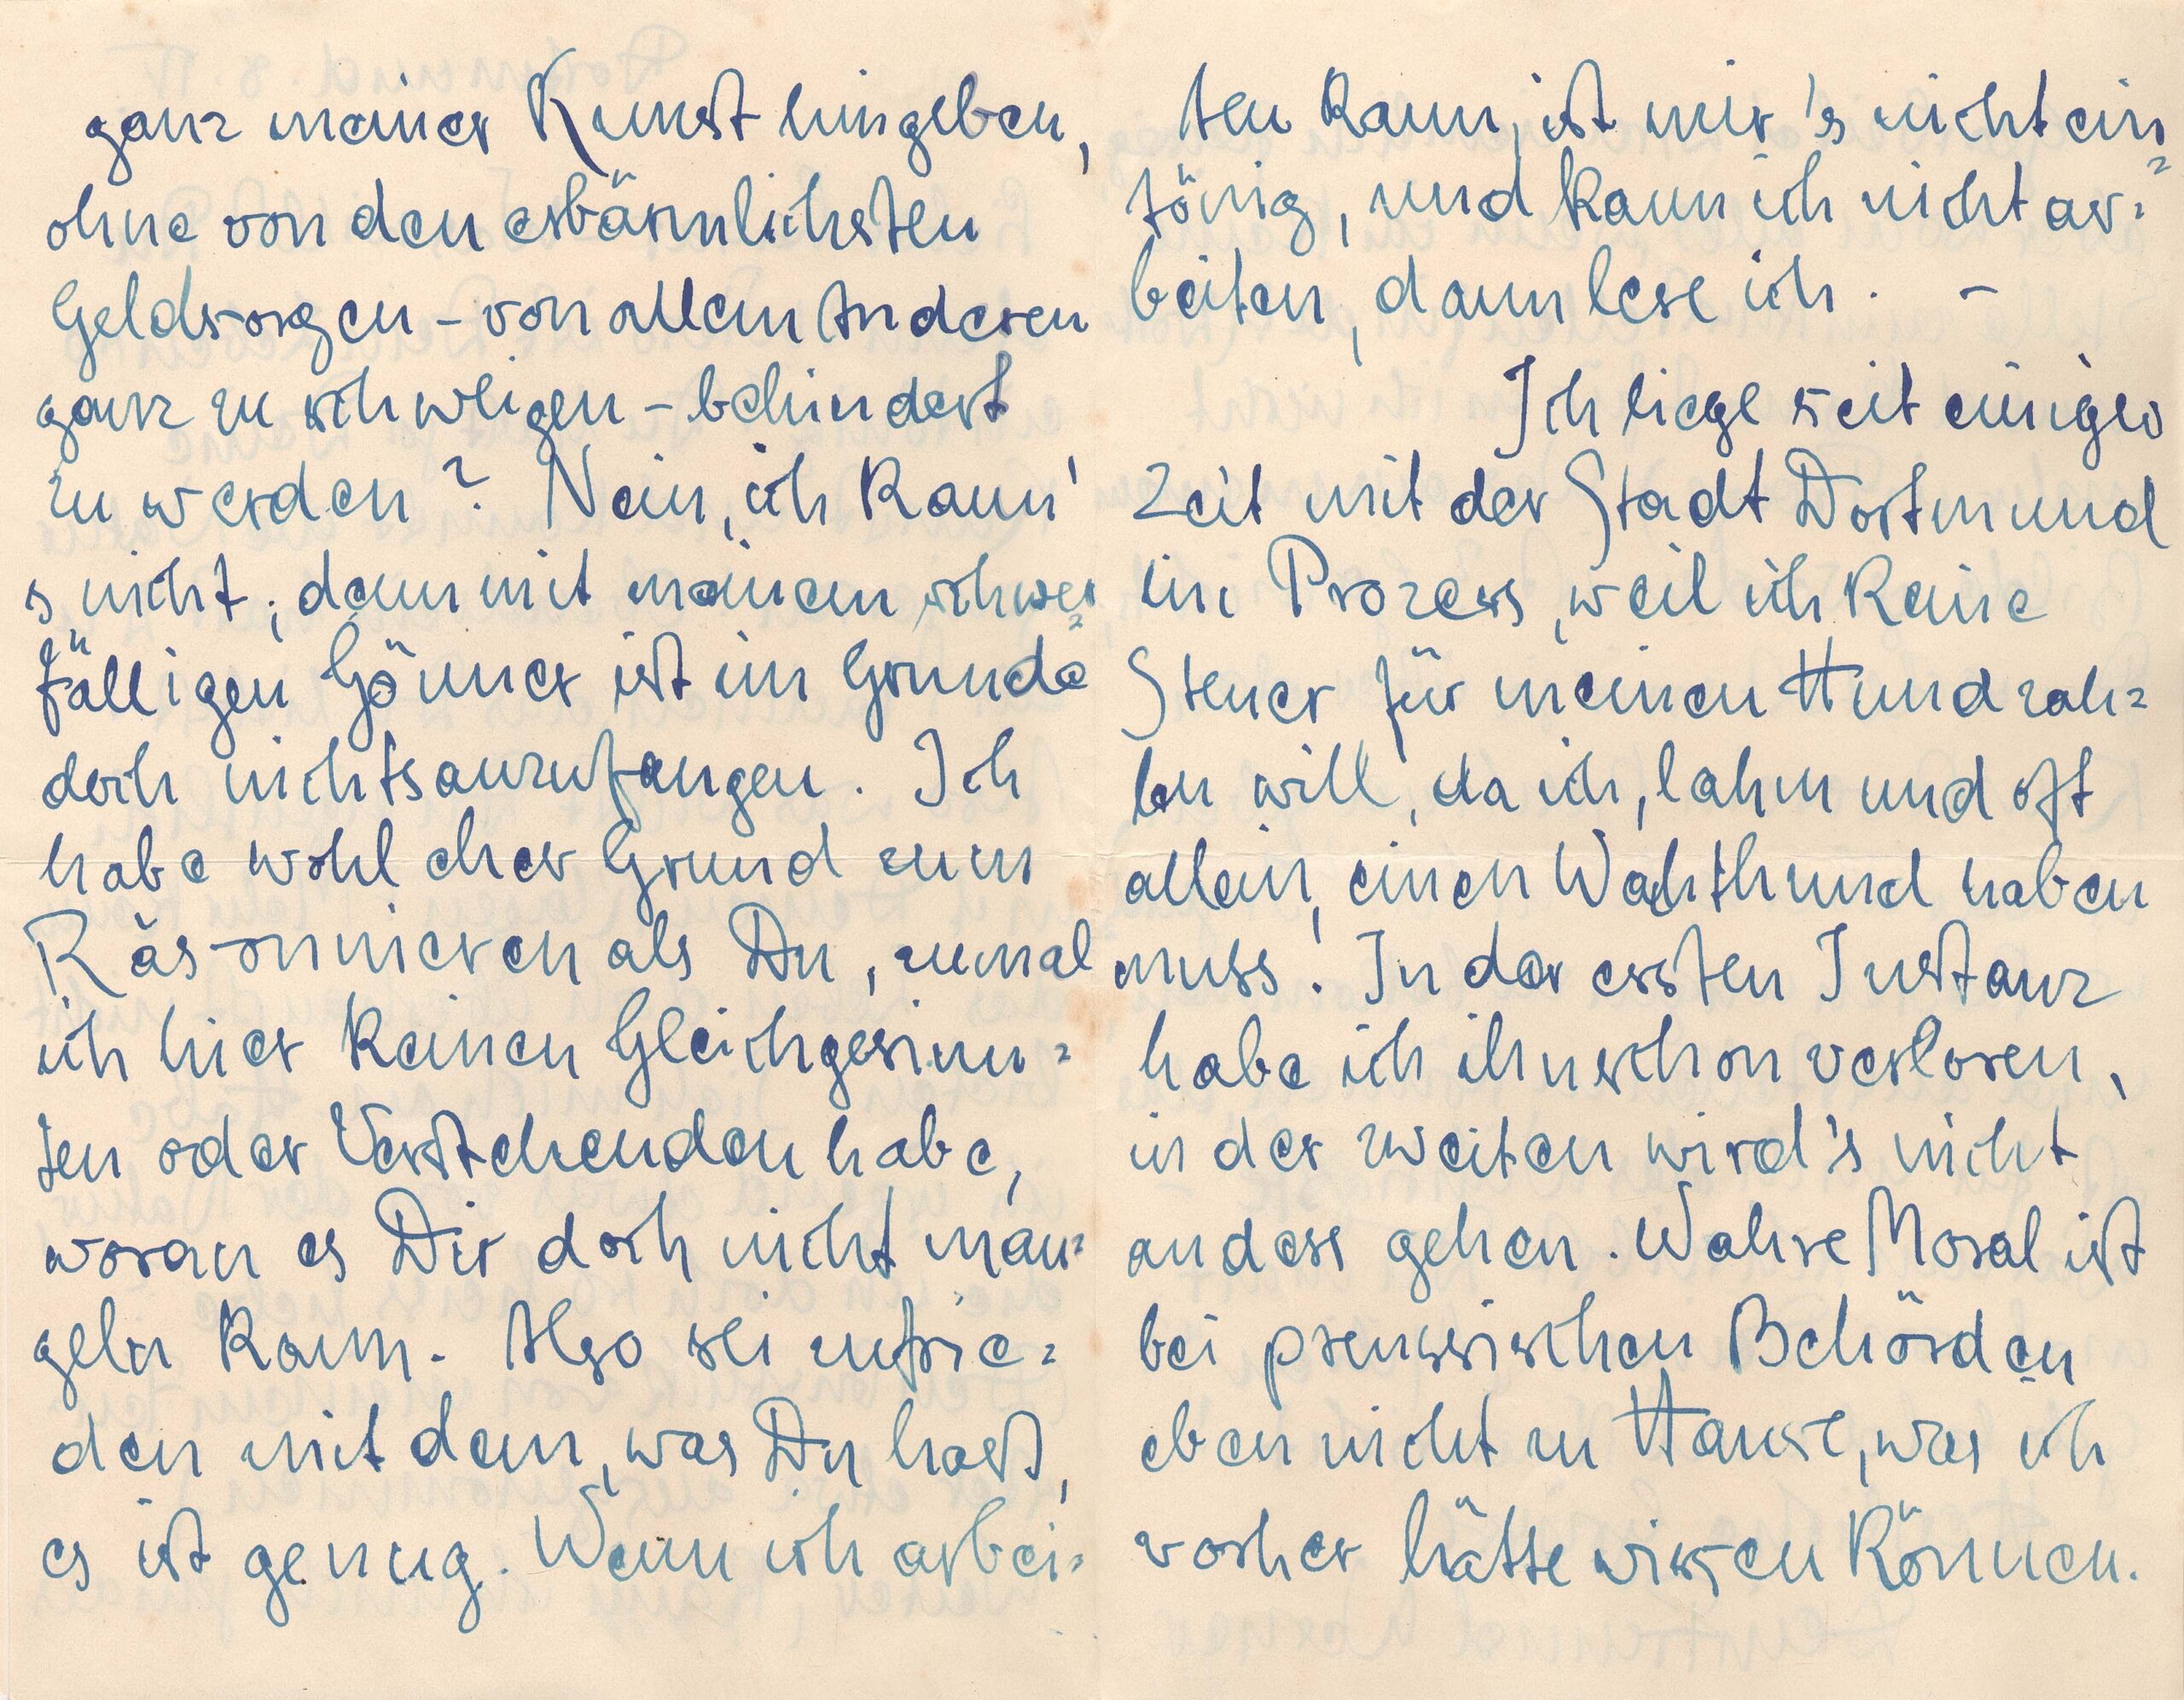 ganz meiner Kunst hingeben,
ohne von den erbärmlichsten
Geldsorgen – von allem Anderen
ganz zu schweigen – behindert
zu werden? Nein, ich kann'
s nicht; denn mit meinem schwer=
fälligen Gönner ist im Grunde
doch nichts anzufangen. Ich
habe wohl eher Grund zum
Räsonnieren als Du, zumal
ich hier keinen Gleichgesinn=
ten oder Verstehenden habe,
woran es Dir doch nicht man=
geln kann. Also sei zufrie=
den mit dem, was Du hast,
es ist genug. Wenn ich arbei=
ten kann, ist mir's nicht ein=
tönig, und kann ich nicht ar=
beiten, dann lese ich. –
Ich liege seit einiger
Zeit mit der Stadt Dortmund
im Prozess, weil ich keine
Steuer für meinen Hund zah=
len will, da ich, lahm und oft
allein, einen Wachthund haben
muss! In der ersten Instanz
habe ich ihn schon verloren,
in der zweiten wird's nicht
anders gehen. Wahre Moral ist
bei preussischen Behörden
eben nicht zu Hause, was ich
vorher hätte wissen können.